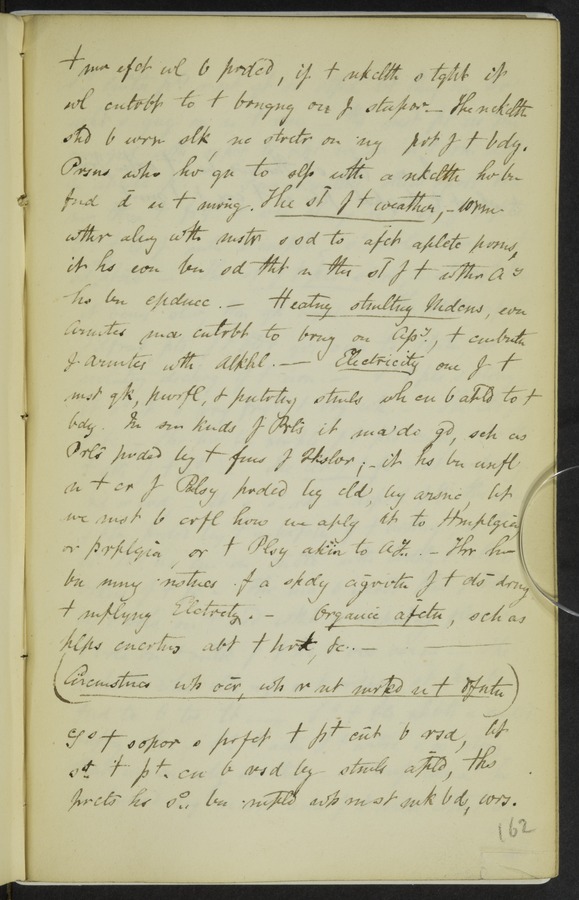 + ma efct wl b prdcd, if + nkclth s tght it
wl cntrbt to + brngng on f stupor — The nckclth
shd b worn slk, no strctr on ny prt f + bdy.
Prsns who hv gn to slp wth a nkclth hv bn
fnd d n + mrng. The st f + weather, — Wrm
wthr alng wth mstr s sd to afct aplctc prsns,
it hs evn bn sd tht n ths st f + wthr A
hs bn epdmc. — Heatng stmltng Mdcns, evn
Armtcs ma cntrbt to brng on Apy., + cmbntn
f armtcs wth alkhl. — Electricity one f +
mst qk, pwrfl, & pntrtng stmls wh cn b apld to +
bdy. In sm knds f Prls it ma do gd, sch as
Prls prdcd by + fms f ; — it hs bn usfl
n + cs f Plsy prdcd by cld, by arsnc, bt
we mst b crfl how we aply it to Hmplgia
or prplgia, or + Plsy akin to A. — Thr hv
bn mny nstncs f a spdy agrvtn f + ds drng
+ mplyng Elctrcty. — Organic afctn, sch as
plps encrtns abt + hrt, &c. —
(Circmstncs wh ocr, wh r nt mrkd n + Dfntn)
+ sopor s prfct + pt cnt b rsd, bt
+ pt. cn b rsd by stmls apld, ths
prcts hs bn mpld wh mst mk bd, wrs.
162